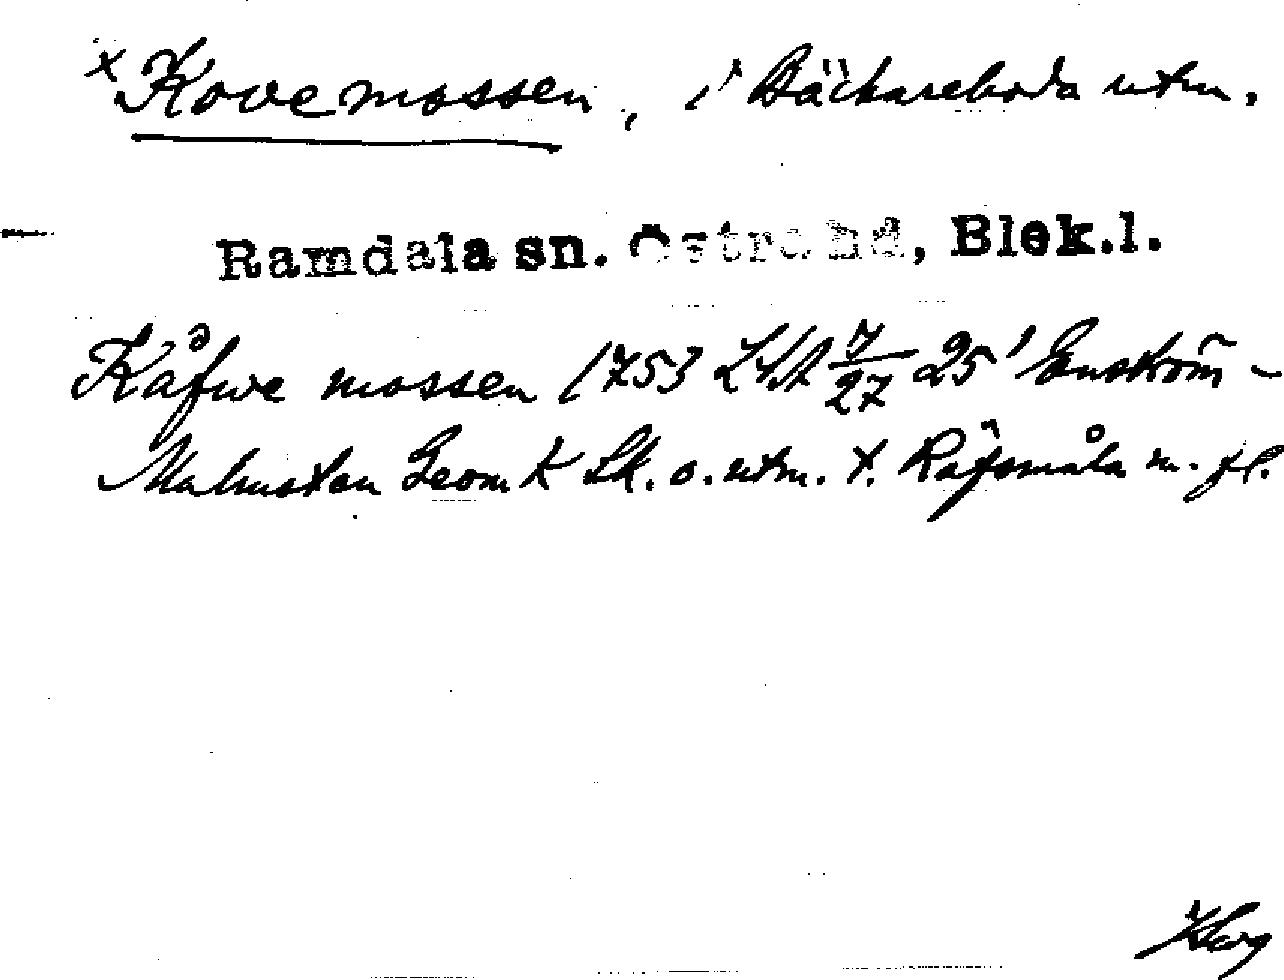 x Kovemossen, i Bäckareboda utm.
Ramdala sn. Östra hd, Blek.l.
Kåfwe mossen 1753 LSA 7/27 25' Enström-
Malmsten Geom K Sk. o. utm. t. Räfsmåla m. fl.